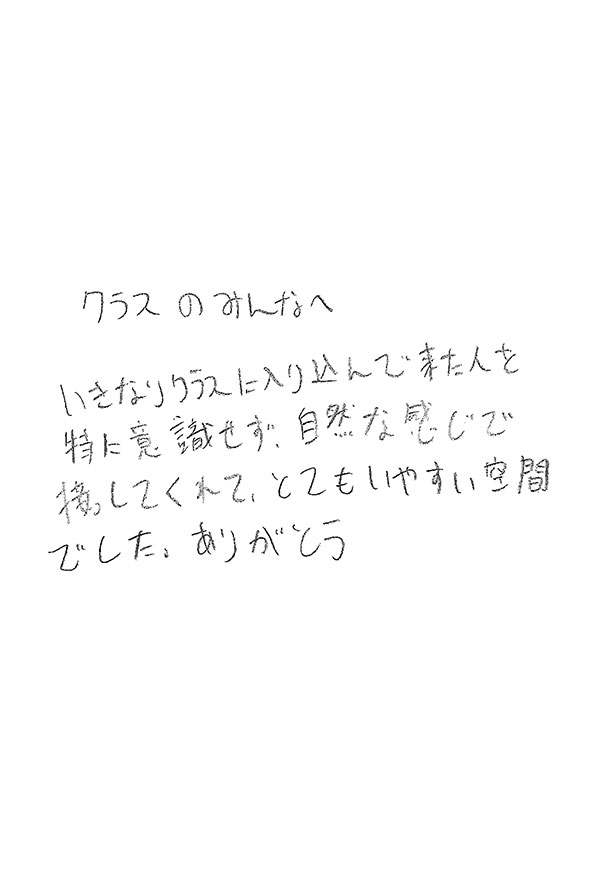 クラスのみんなへ
いきなりクラスに入り込んで来た人を
特に意識せず、自然な感じで
接してくれて、とてもいやすい空間
でした。ありがとう